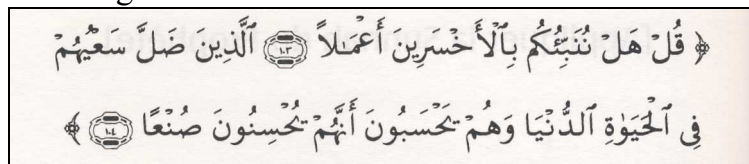 ﴿ قُلْ هَلْ نُنَبِّئُكُم بِٱلْأَخْسَرِينَ أَعْمَـٰلاً ۝١٠٣ ٱلَّذِينَ ضَلَّ سَعْيُهُمْ
فِى ٱلْحَيَوٰةِ ٱلدُّنْيَا وَهُمْ يَحْسَبُونَ أَنَّهُمْ يُحْسِنُونَ صُنْعًا ۝١٠٤ ﴾